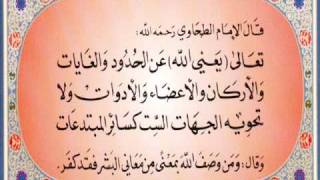 قَالَ الإِمَامُ الطَّحَاوِيُّ رَحِمَهُ اللهُ:
تَعَالَى (يَعْنِي اللهَ) عَنِ الْحُدُودِ وَالْغَايَاتِ
وَالأَرْكَانِ وَالأَعْضَاءِ وَالأَدَوَاتِ وَلَا
تَحْوِيهِ الْجِهَاتُ السِّتُّ كَسَائِرِ الْمُبْتَدَعَاتِ
وَقَالَ: وَمَنْ وَصَفَ اللهَ بِمَعْنًى مِنْ مَعَانِي الْبَشَرِ فَقَدْ كَفَرَ.